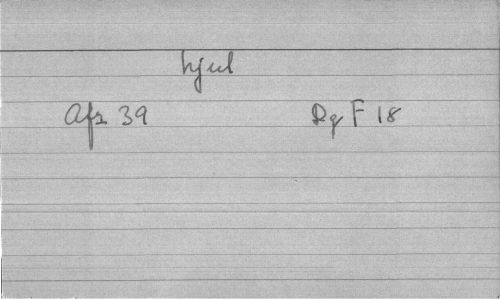 hjul
Afz 39 Rq F 18